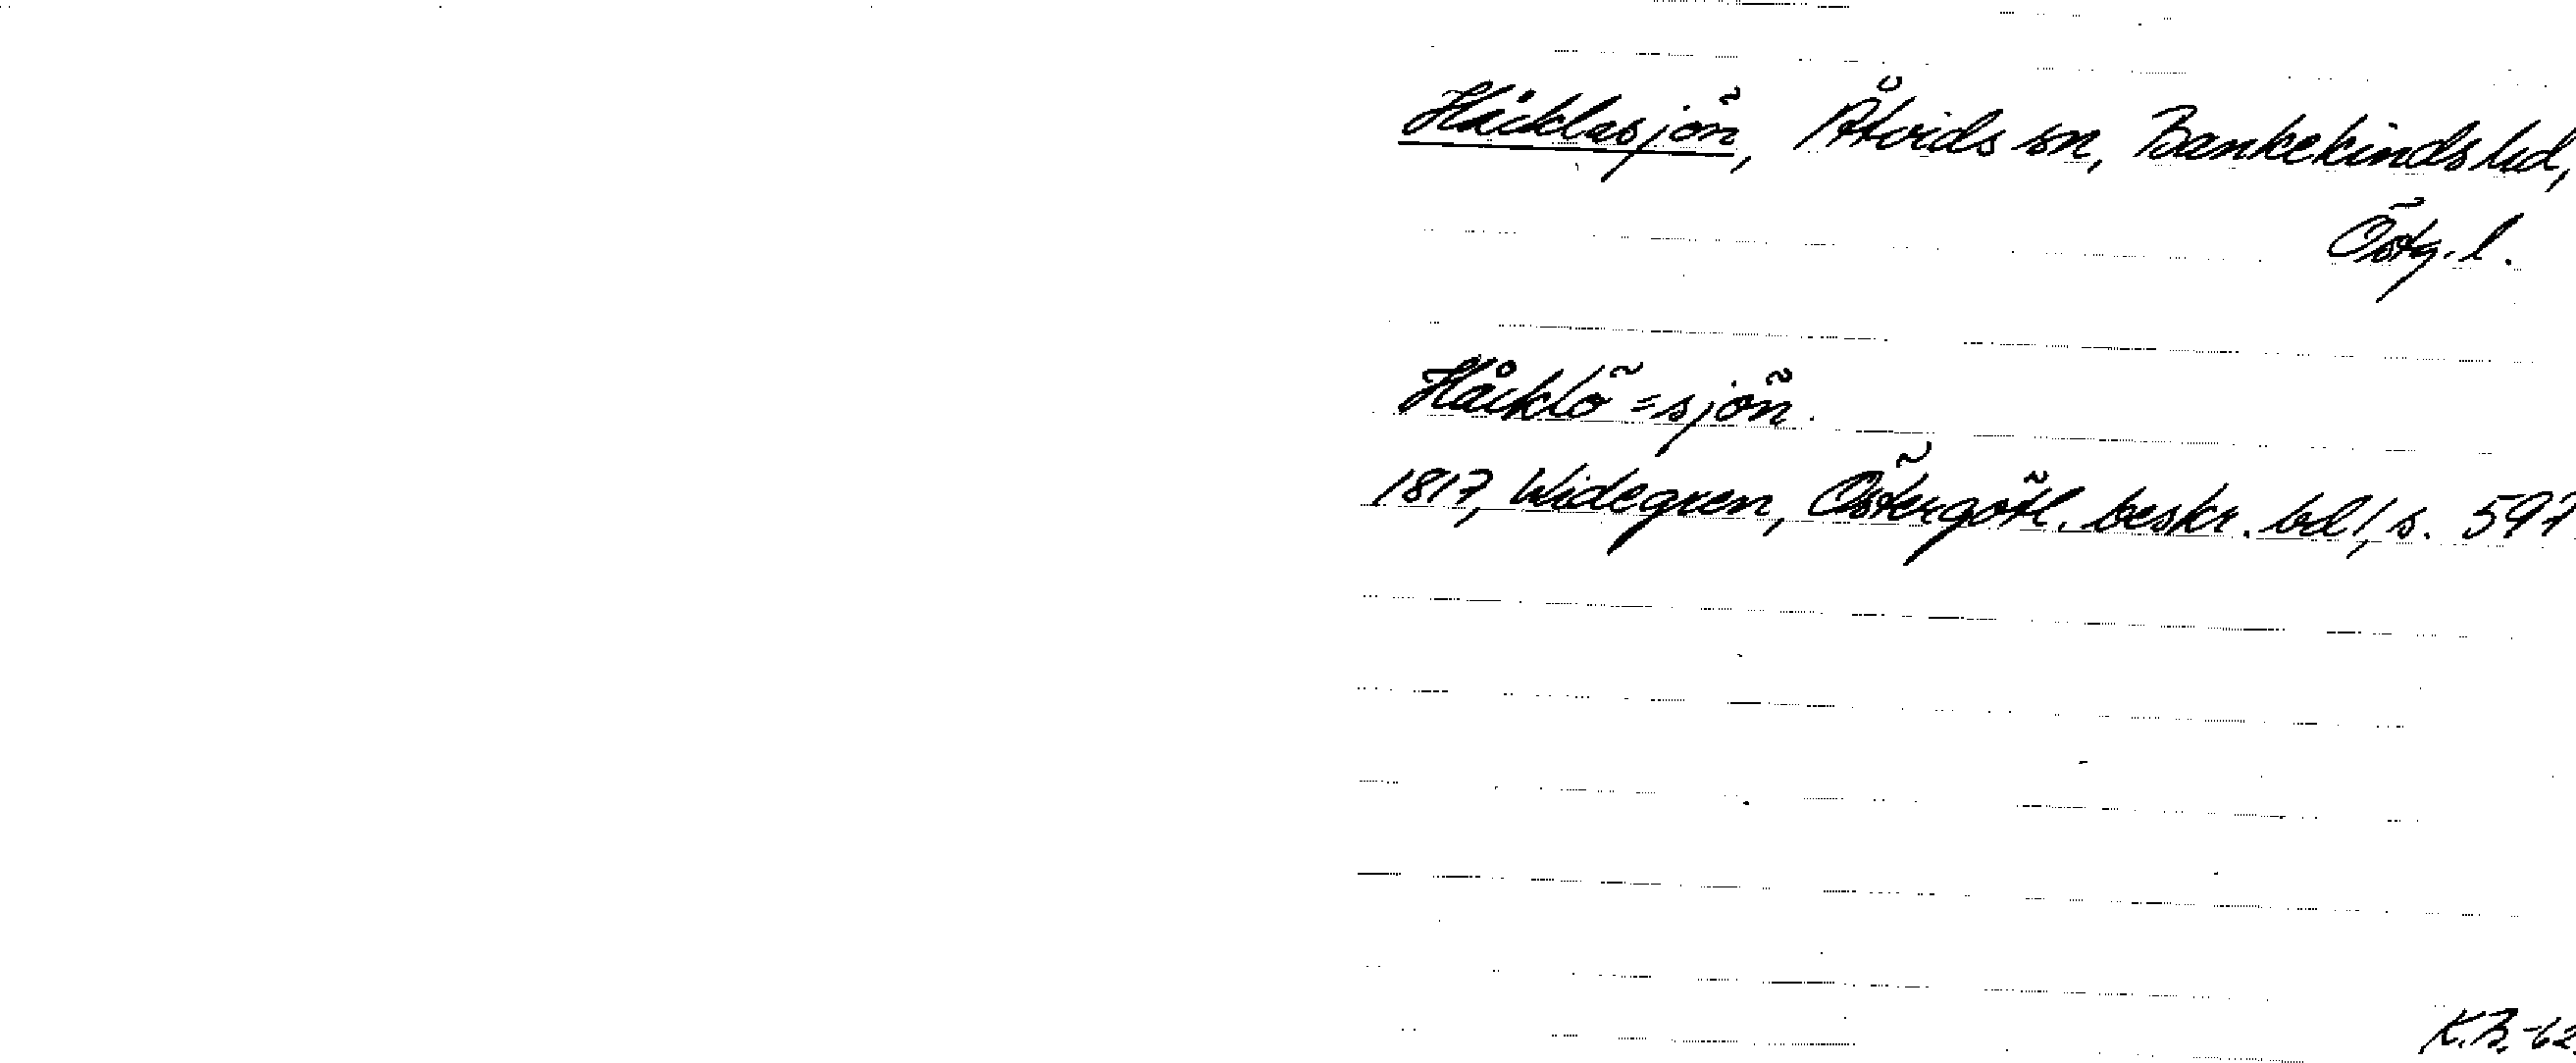 Håcklasjön, Åtvids sn, Bankekinds hd,
Östg. l.
Håcklö=sjön.
1817, Widegren, Östergötl. beskr. bd 1, s. 597
K.B. -62